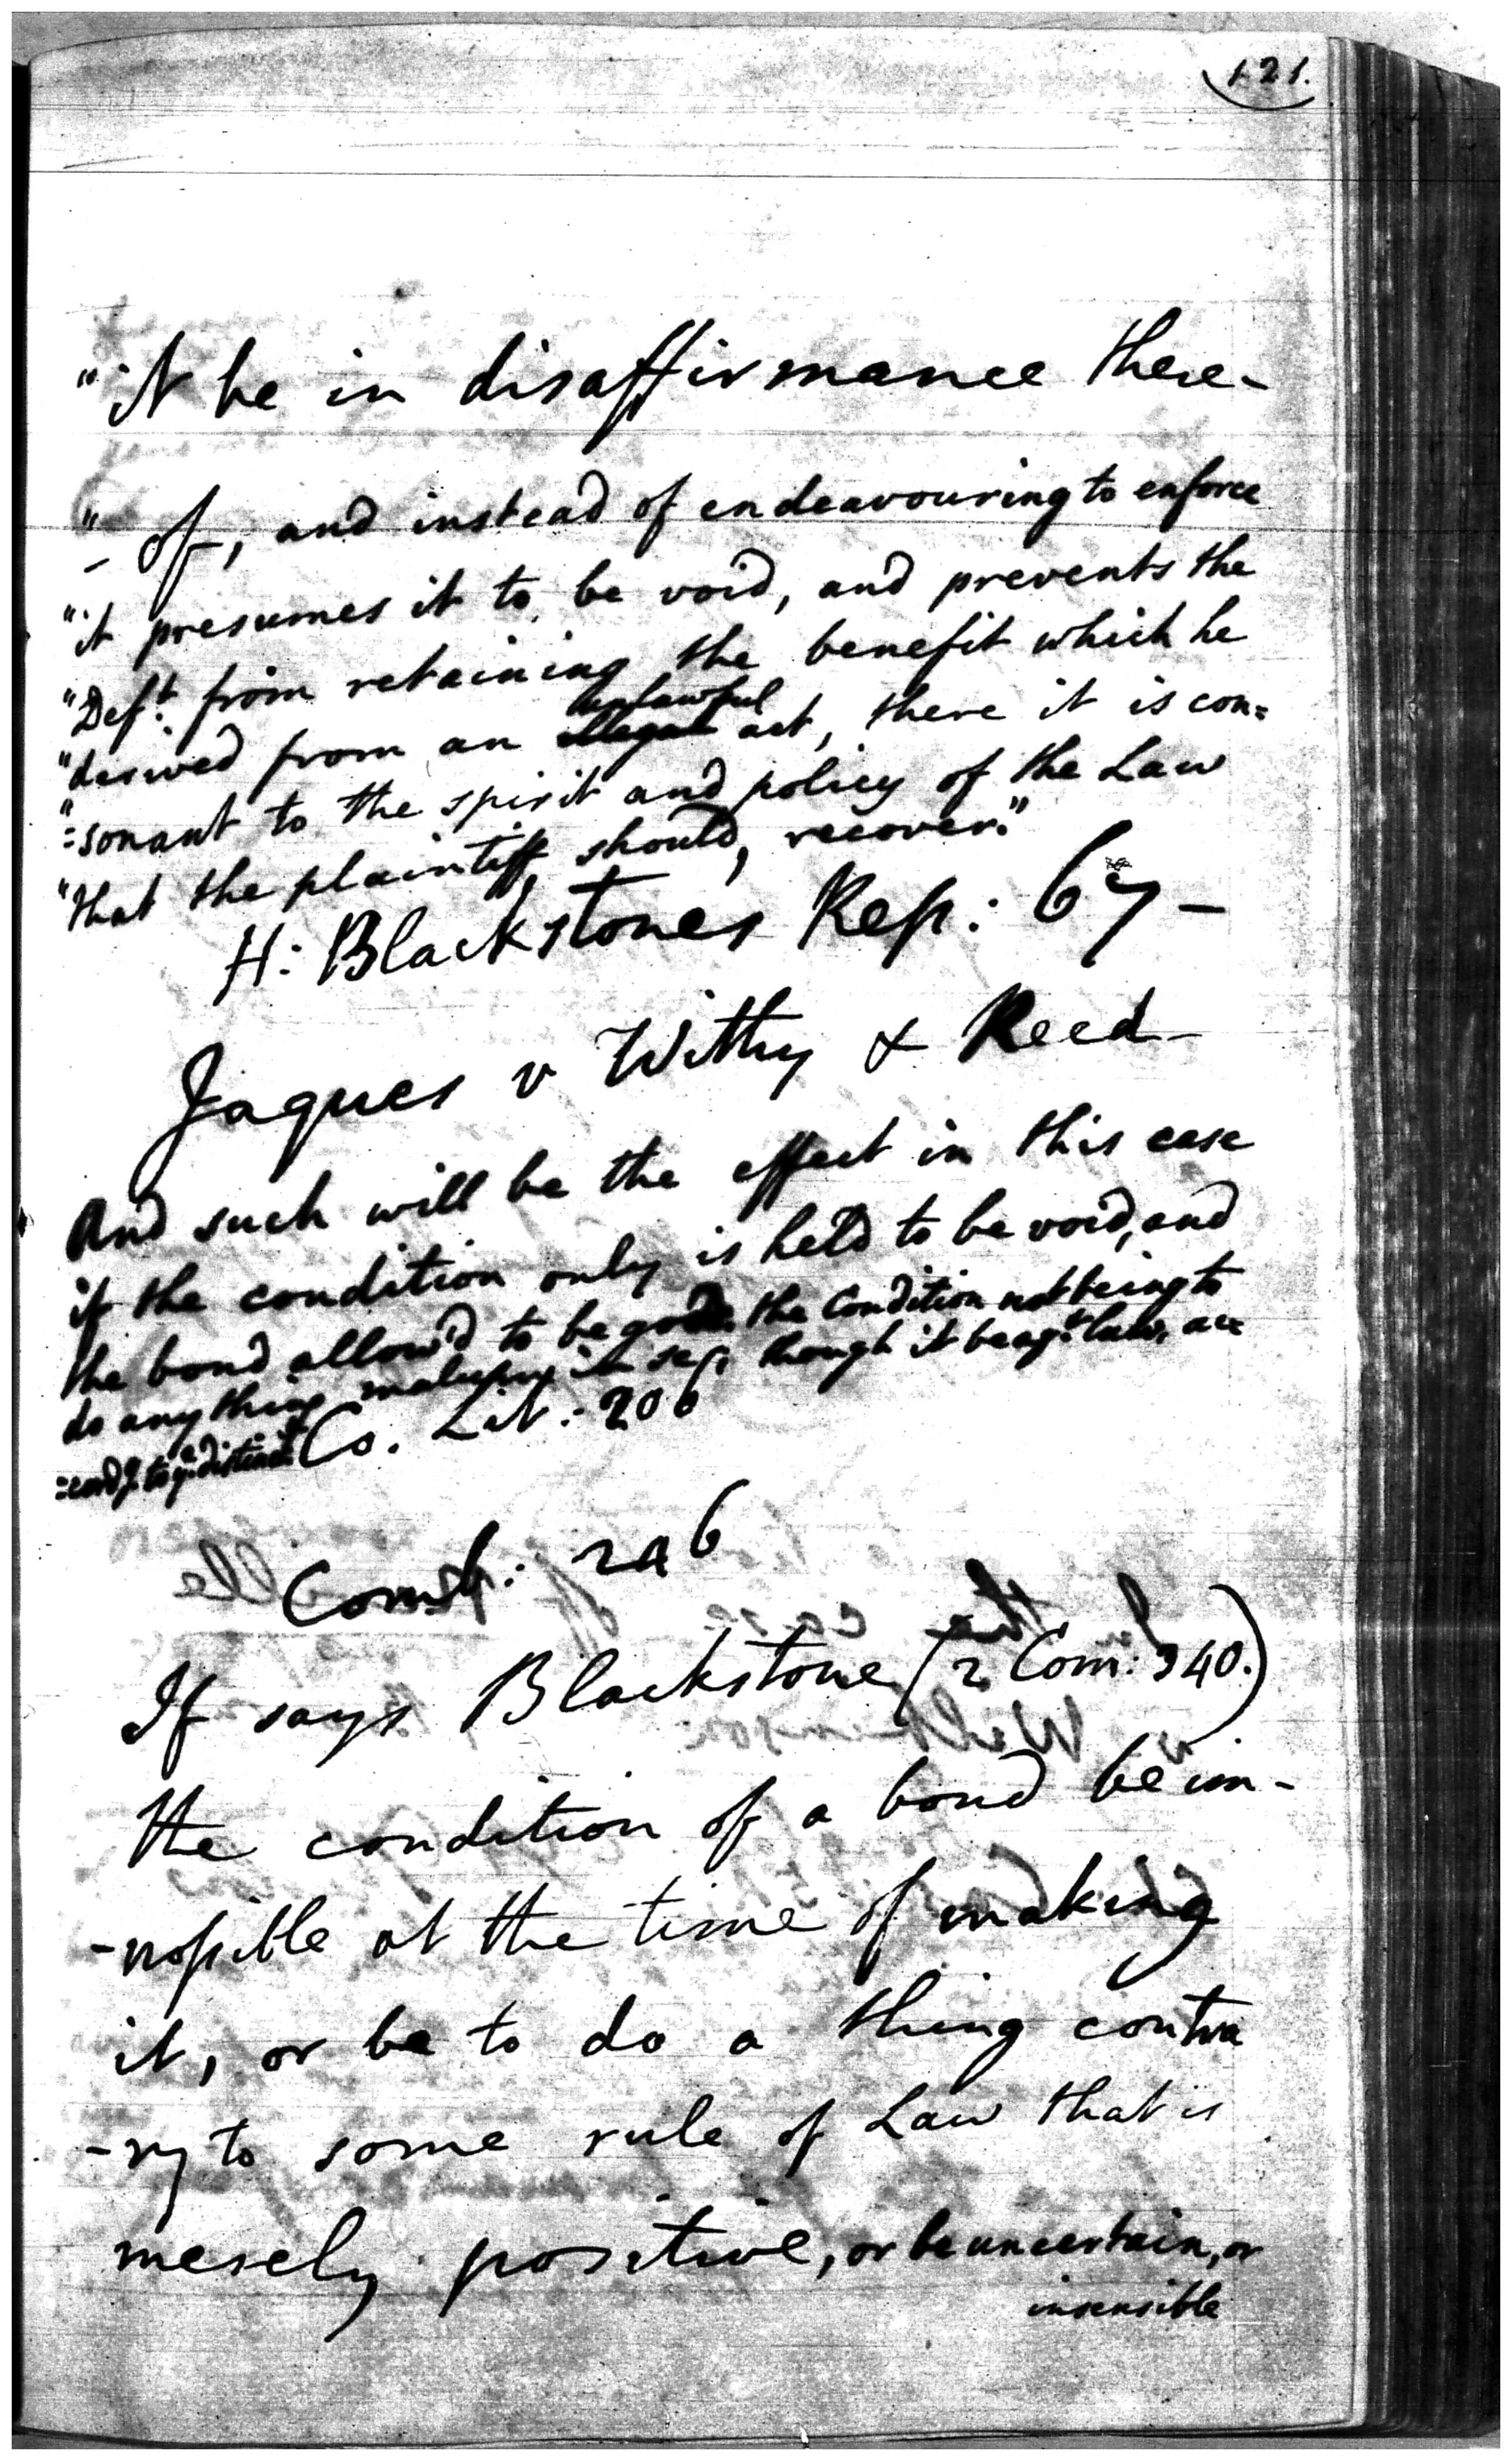 121.
"it be in disaffirmance there-
"- of, and instead of endeavouring to enforce
"it presumes it to be void, and prevents the
"Deft. from retaining the benefit which he
unlawful
"derived from an illegal act, there it is con=
"=sonant to the spirit and policy of the Law
"that the plaintiff, should, recover."
H: Blackstones Rep: 67 -
Jaques v Withy & Reed
And such will be the effect in this case
if the condition only is held to be void, and
the bond allow'd to be good. the Condition not being to
do any thing malum in se, though it be agt. law, acc
=cordg. to ye. distinct. Co. Lit: 206
Comb: 246
If says Blackstone (2 Com: 340.)
the condition of a bond be im-
-possible at the time of making
it, or be to do a thing contra
-ry to some rule of Law that is
merely positive, or be uncertain, or
insensible